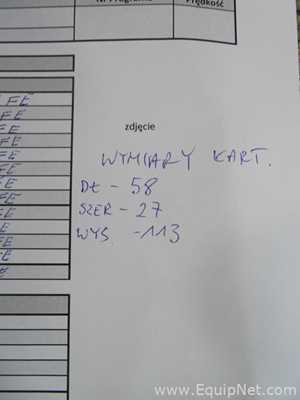 Nr Programu
Prędkość
FE
FE
FE
FE
FE
FE
FE
FE
FE
FE
FE
FE
zdjęcie
WYMIARY KART.
DŁ - 58
SZER - 27
WYS. - 113
www.EquipNet.com